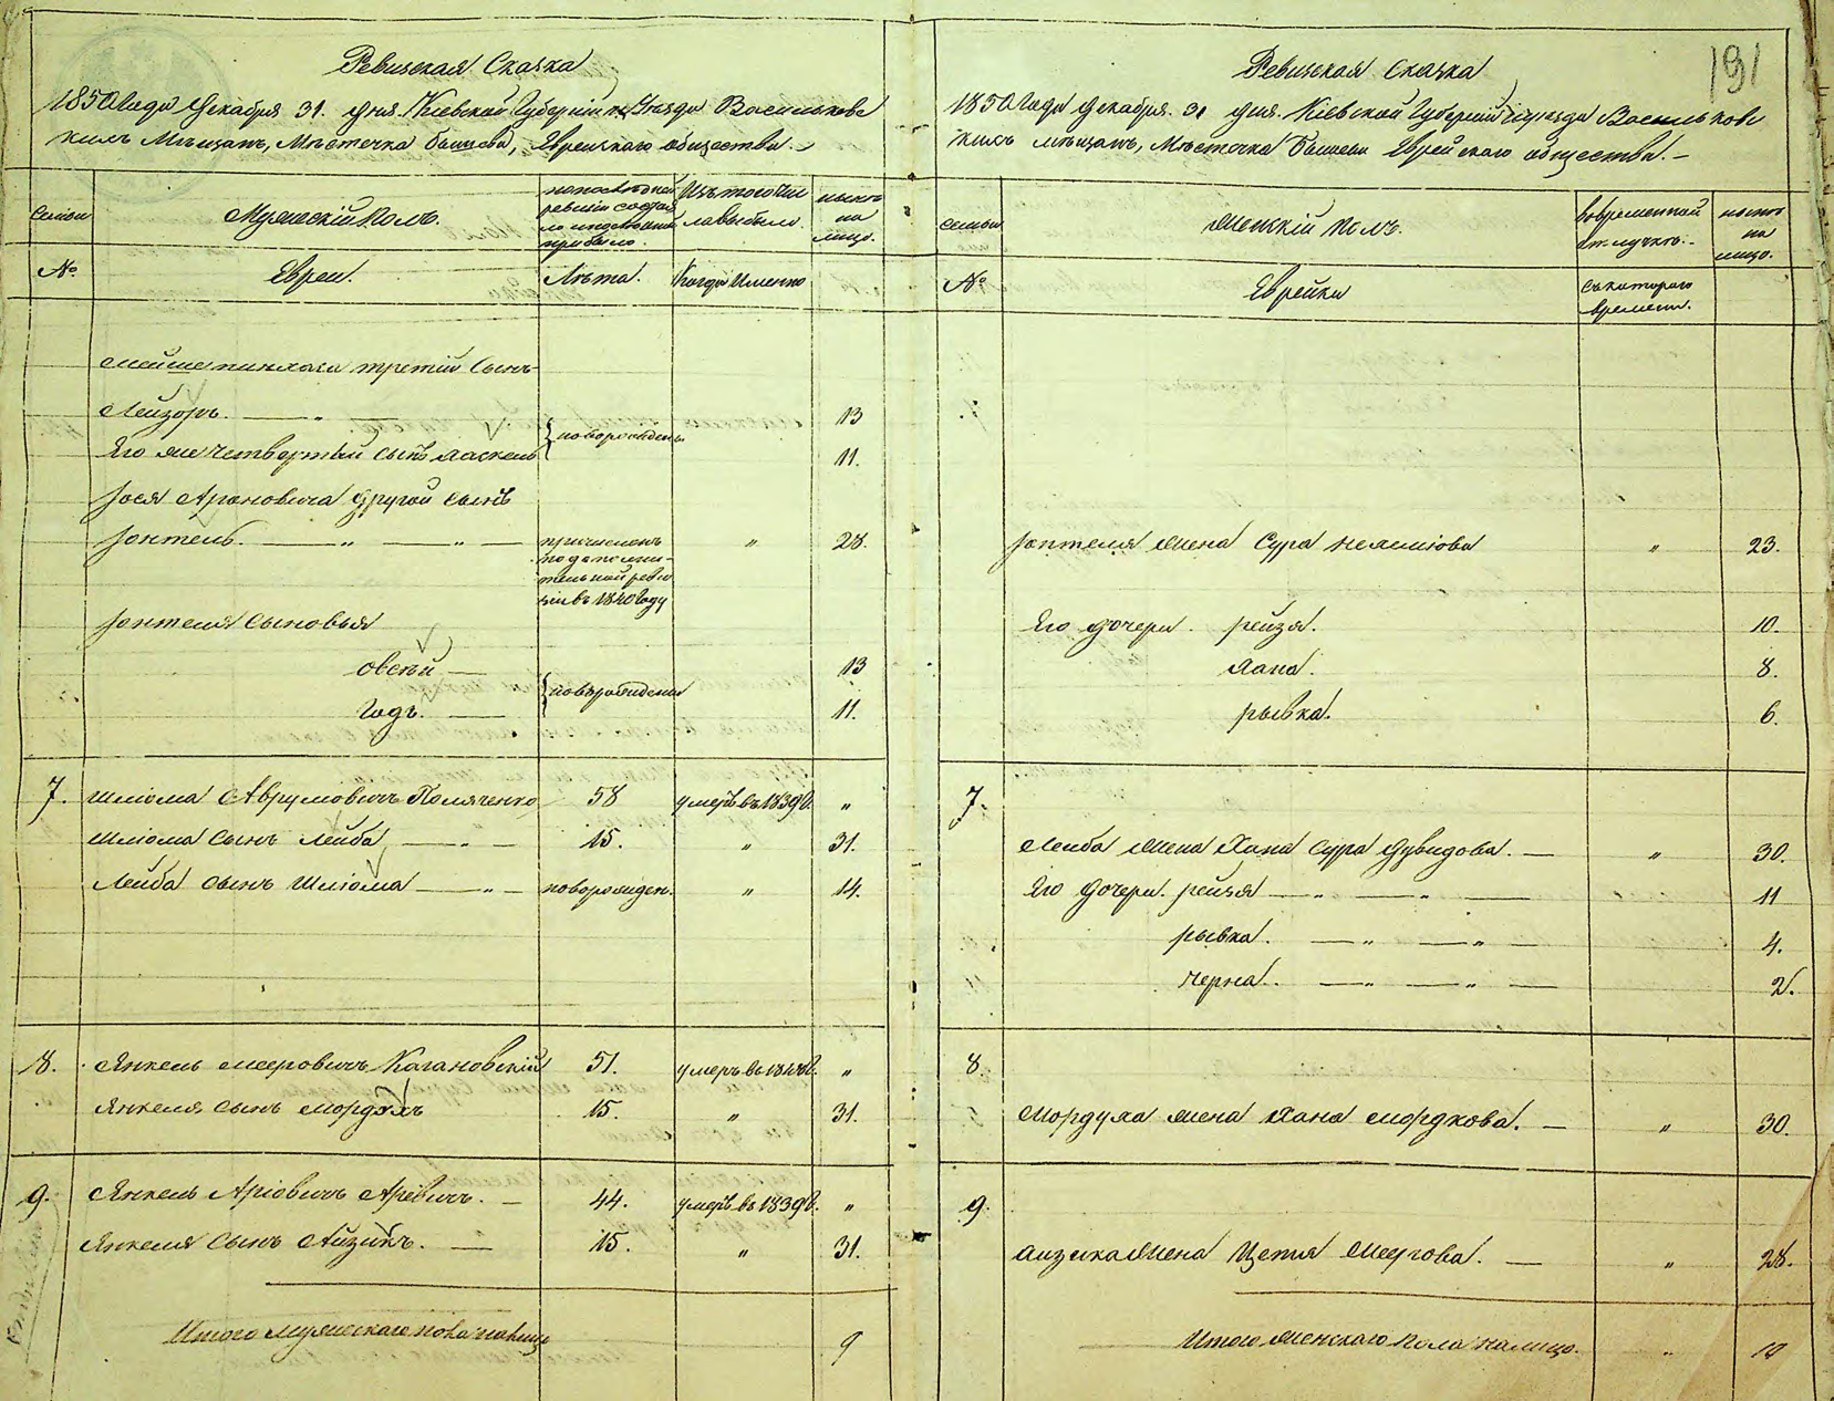 Ревизская Сказка
1850 Года Декабря 31. дня. Кіевской Губерніи Уѣзда Васильковс
кихъ Мѣщанъ, Мѣстечка Бышева, Еврейскаго общества.
Семьи
Мужескій Полъ.
по послѣдней
ревизіи состоя
ло и послѣ оной
прибыло.
Изъ того чис
ла выбыло.
нынѣ
на
лицо.
№
Евреи.
Лѣта.
Когда Именно
третій Сынъ
Лейзоръ. — „ —
новорожден.
13
Его же четвертый сынъ Хаскель
11.
Іося Ароновича другой сынъ
Іонтель. — „ — „ —
причисленъ
по дополни-
тельной реви
зіи въ 1840 Году
„
28.
Іонтеля Сыновья
Овсѣй —
новорожден
13
Годъ. —
11.
7. Шліома Аврумовичъ Поляченко 58 умеръ въ 1839 г. „
Шліома Сынъ Лейба — „ — 15. „ 31.
Лейба Сынъ Шліома — „ — новорожден. „ 14.
8. Янкель Мееровичъ Кагановскій 51. умеръ въ „
Янкеля Сынъ Мордухъ 15. „ 31.
9. Янкель Аріовичъ Аревичъ. — 44. умеръ въ 1839 г. „
Янкеля Сынъ Айзикъ. — 15. „ 31.
Итого мужескаго пола налицо 9
191
Ревизская Сказка
1850 Года Декабря. 31 дня. Кіевской Губерніи Уѣзда Васильковс
кихъ мѣщанъ, Мѣстечка Бышева Еврейскаго общества. —
семьи
Женскій Полъ.
во временной
отлучкѣ.
нынѣ
на
лицо.
№
Еврейки
съ котораго
времени.
Іонтеля жена Сура Нехеміова „ 23.
Его дочери. рейзя. 10.
Хана. 8.
рывка. 6.
7.
Лейба жена Хана Сура Дувидова. — „ 30.
Его дочери. рейзя — „ — „ — 11
рывка. — „ — „ — 4.
Черна. — „ — „ — 2.
8.
Мордуха жена Хана Мордкова. — „ 30.
9.
Айзика жена Цетя Меерова. — „ 28.
Итого женскаго пола налицо. „ 10